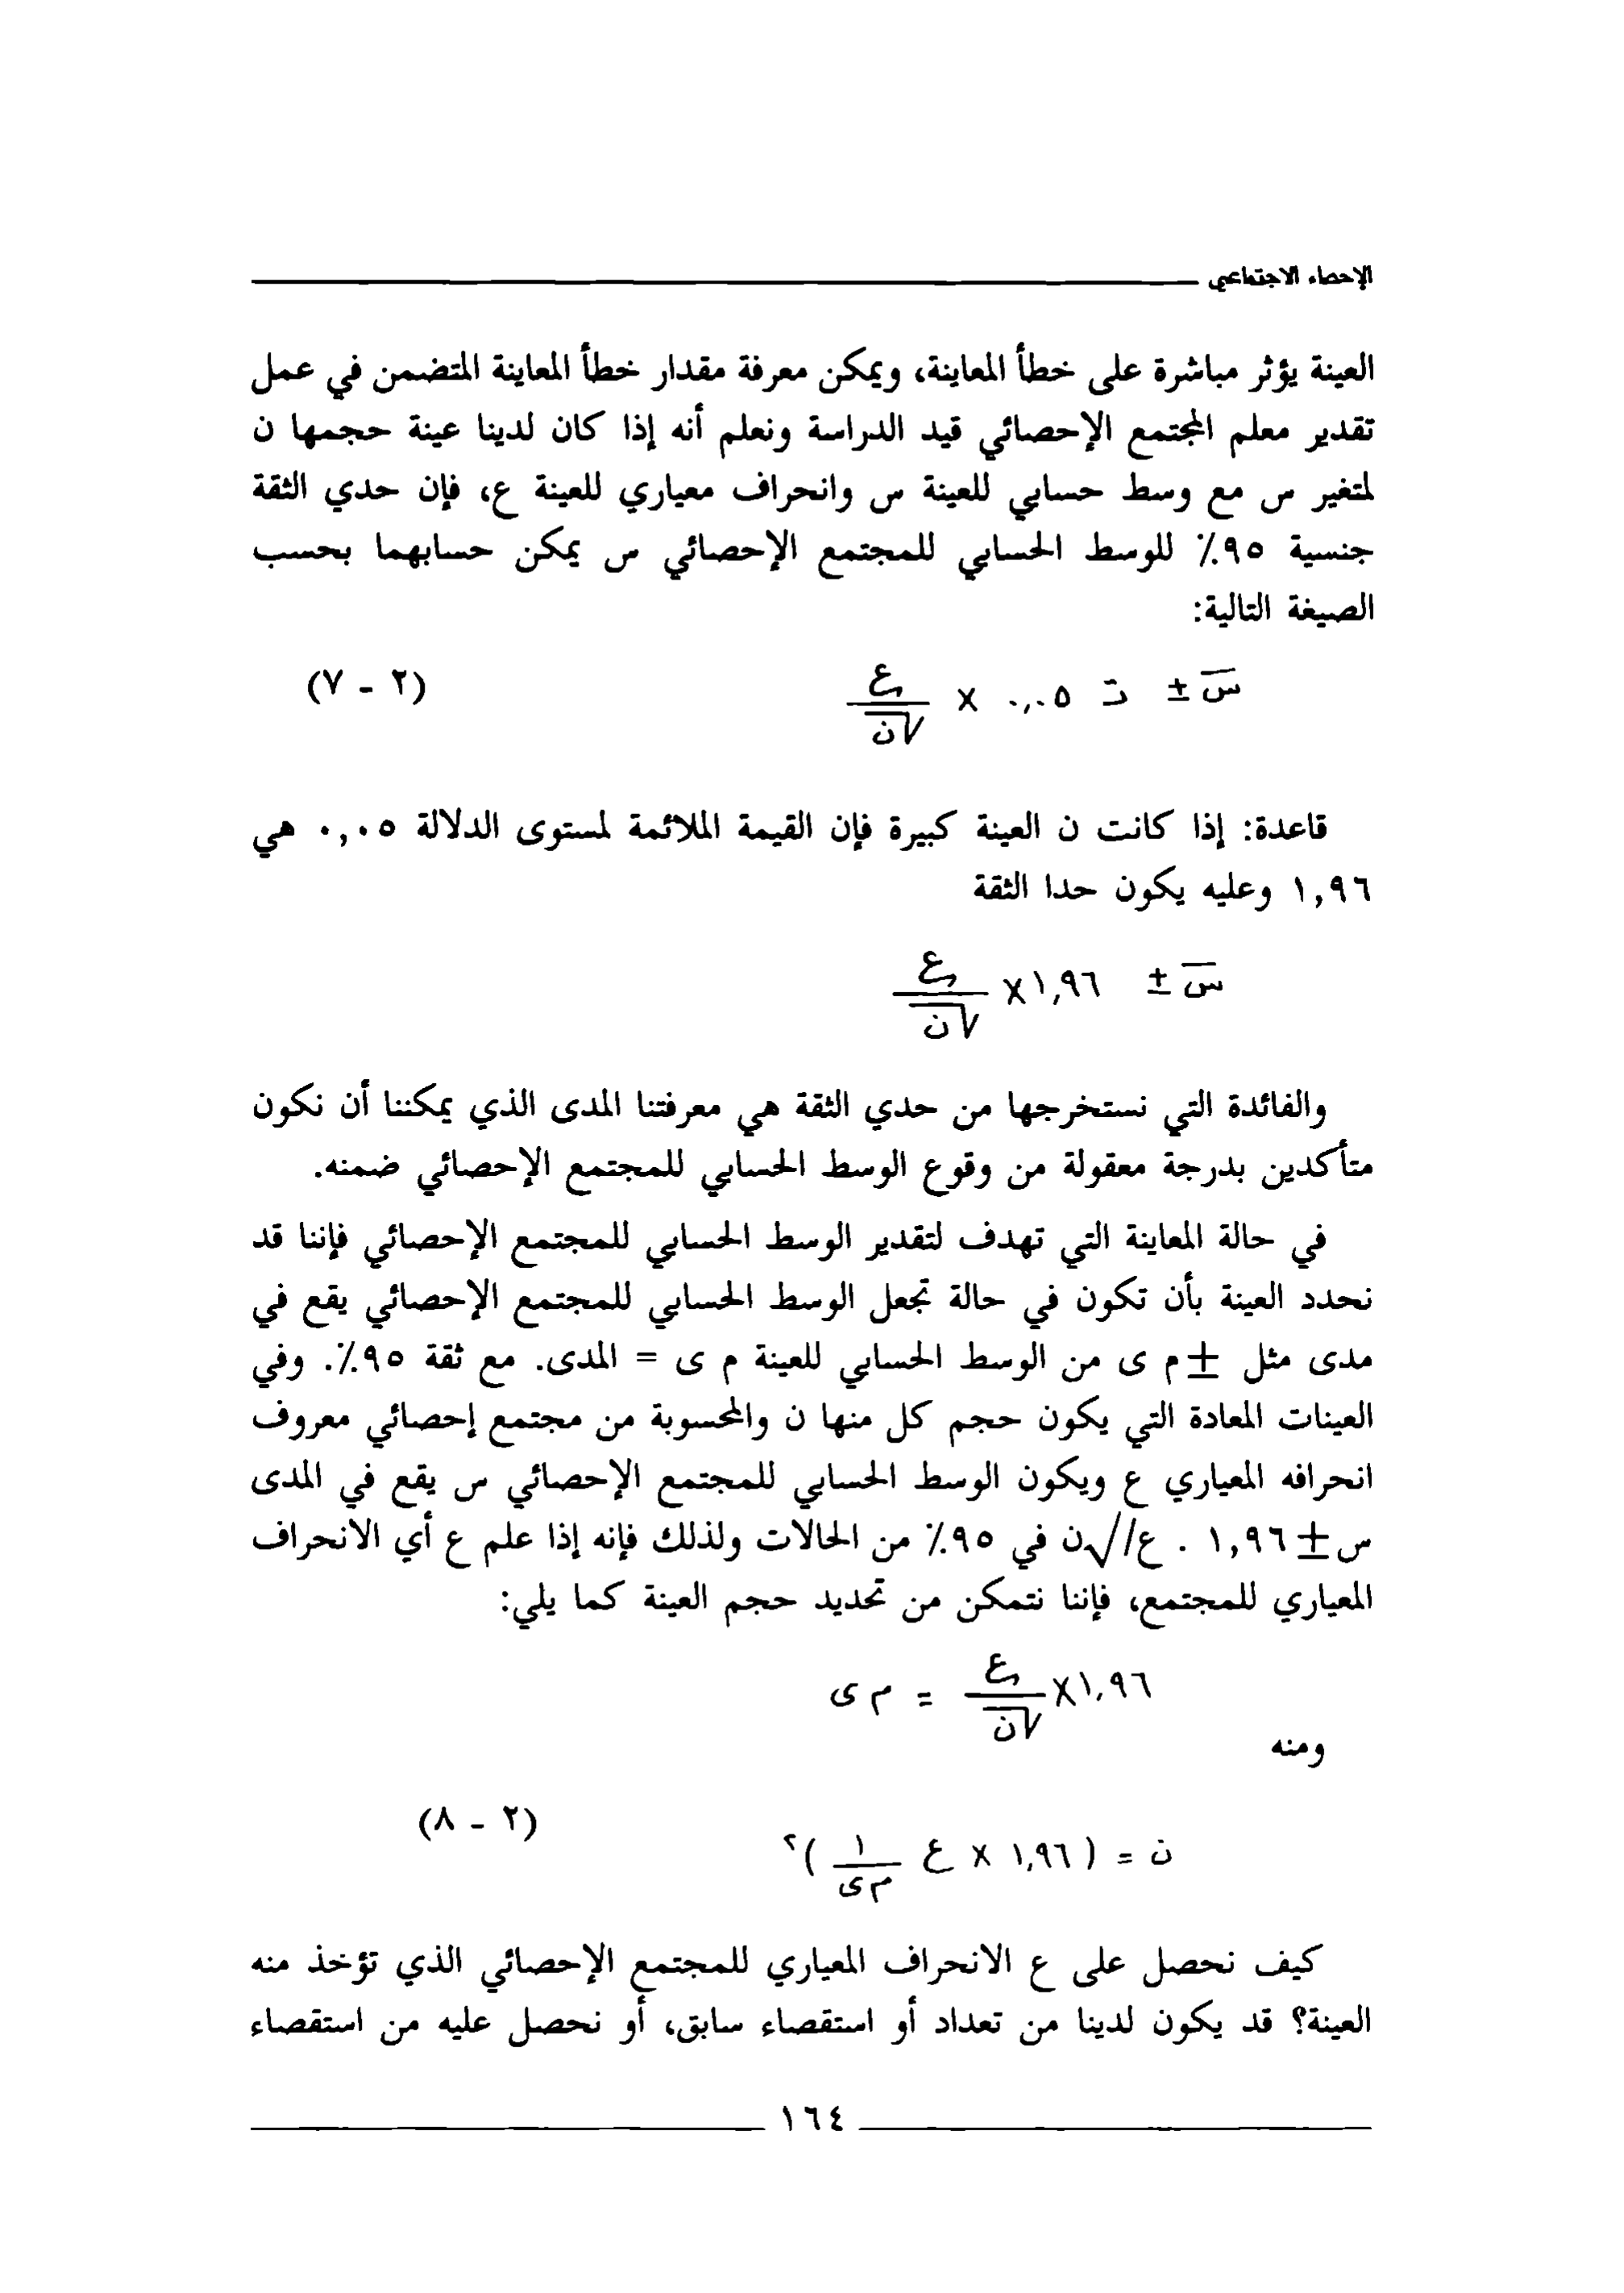 الإحصاء الاجتماعي
العينة يؤثر مباشرة على خطأ المعاينة، ويمكن معرفة مقدار خطأ المعاينة المتضمن في عمل
تقدير معلم المجتمع الإحصائي قيد الدراسة ونعلم أنه إذا كان لدينا عينة حجمها ن
لمتغير س مع وسط حسابي للعينة س وانحراف معياري للعينة ع، فإن حدي الثقة
جنسية ٩٥٪ للوسط الحسابي للمجتمع الإحصائي س يمكن حسابهما بحسب
الصيغة التالية:
س̅ ± ت ٠,٠٥ × ع/√ن (٢ - ٧)
قاعدة: إذا كانت ن العينة كبيرة فإن القيمة الملائمة لمستوى الدلالة ٠,٠٥ هي
١,٩٦ وعليه يكون حدا الثقة
س̅ ± ١,٩٦ × ع/√ن
والفائدة التي نستخرجها من حدي الثقة هي معرفتنا المدى الذي يمكننا أن نكون
متأكدين بدرجة معقولة من وقوع الوسط الحسابي للمجتمع الإحصائي ضمنه.
في حالة المعاينة التي تهدف لتقدير الوسط الحسابي للمجتمع الإحصائي فإننا قد
نحدد العينة بأن تكون في حالة تجعل الوسط الحسابي للمجتمع الإحصائي يقع في
مدى مثل ± م ى من الوسط الحسابي للعينة م ى = المدى. مع ثقة ٩٥٪. وفي
العينات المعادة التي يكون حجم كل منها ن والمحسوبة من مجتمع إحصائي معروف
انحرافه المعياري ع ويكون الوسط الحسابي للمجتمع الإحصائي س يقع في المدى
س ± ١,٩٦ . ع//√ن في ٩٥٪ من الحالات ولذلك فإنه إذا علم ع أي الانحراف
المعياري للمجتمع، فإننا نتمكن من تحديد حجم العينة كما يلي:
١,٩٦ × ع/√ن = م ى
ومنه
ن = (١,٩٦ × ع ١/م ى)٢ (٢ - ٨)
كيف نحصل على ع الانحراف المعياري للمجتمع الإحصائي الذي تؤخذ منه
العينة؟ قد يكون لدينا من تعداد أو استقصاء سابق، أو نحصل عليه من استقصاء
١٦٤